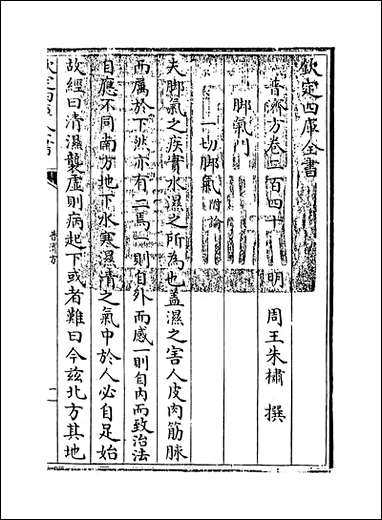 欽定四庫全書
普濟方卷二百四十
明 周王朱橚 撰
脚氣門
一切脚氣附論
夫脚氣之疾實水濕之所為也蓋濕之害人皮肉筋脉
而屬於下然亦有二焉一則自外而感一則自內而致治法
自應不同南方地下水寒濕清之氣中於人必自足始
故經曰清濕襲虛則病起下或者難曰今兹北方其地
欽定四庫全書
普濟方